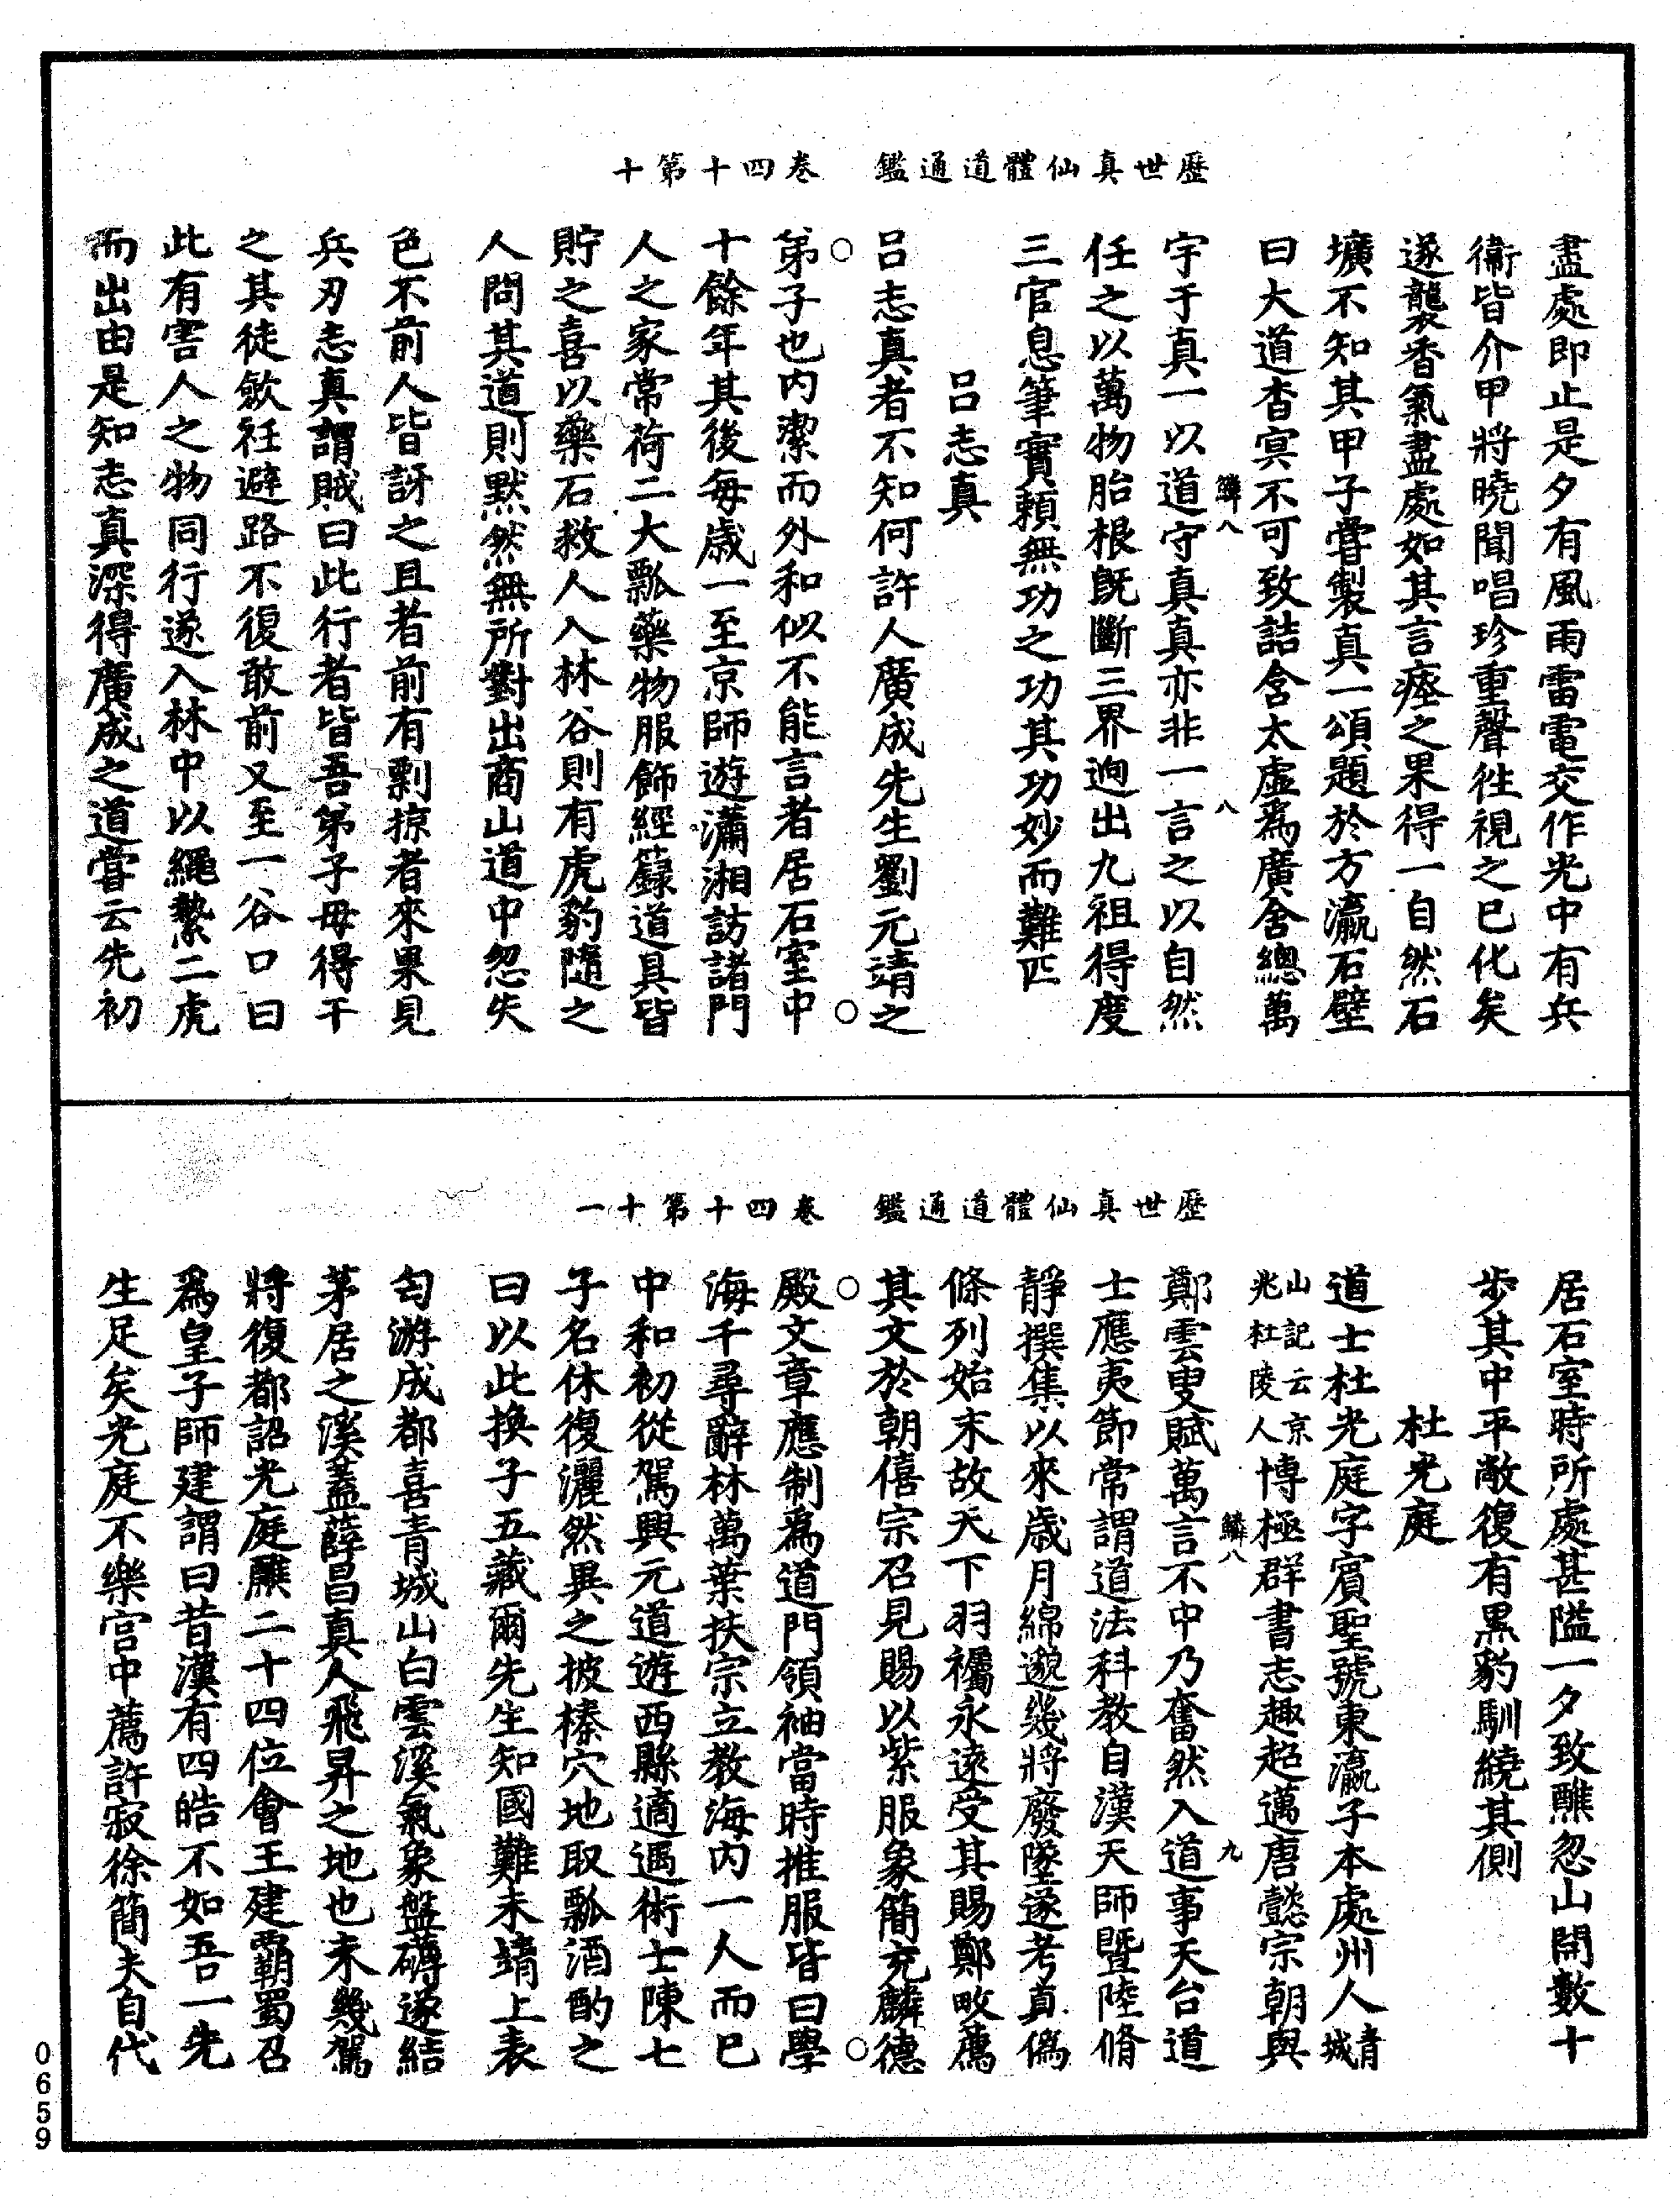 歷世真仙體道通鑑　卷四十第十
盡處即止是夕有風雨雷電交作光中有兵
衛皆介甲將曉聞唱珍重聲徃視之已化矣
遂襲香氣盡處如其言瘞之果得一自然石
壙不知其甲子嘗製真一頌題於方瀛石壁
曰大道杳冥不可致詰含太虛爲廣舍總萬
鱗八　八
宇于真一以道守真真亦非一言之以自然
任之以萬物胎根旣斷三界逈出九祖得度
三官息筆實賴無功之功其功妙而難匹
呂志真
呂志真者不知何許人廣成先生劉元靖之
弟子也内潔而外和似不能言者居石室中
十餘年其後每歲一至京師遊瀟湘訪諸門
人之家常荷二大瓢藥物服飾經籙道具皆
貯之喜以藥石救人入林谷則有虎豹隨之
人問其道則默然無所對出商山道中忽失
色不前人皆訝之且者前有剽掠者來果見
兵刃志真謂賊曰此行者皆吾弟子毋得干
之其徒斂衽避路不復敢前又至一谷口曰
此有害人之物同行遂入林中以繩縶二虎
而出由是知志真深得廣成之道嘗云先初
歷世真仙體道通鑑　卷四十第十一
居石室時所處甚隘一夕致醮忽山開數十
步其中平敞復有黑豹馴繞其側
杜光庭
道士杜光庭字賓聖號東瀛子本處州人青城
山記云京兆杜陵人博極群書志趣超邁唐懿宗朝與
鱗八　九
鄭雲叟賦萬言不中乃奮然入道事天台道
士應夷節常謂道法科教自漢天師暨陸脩
靜撰集以來歲月綿邈幾將廢墜遂考真僞
條列始末故天下羽襦永遠受其賜鄭畋薦
其文於朝僖宗召見賜以紫服象簡充麟德
殿文章應制爲道門領袖當時推服皆曰學
海千尋辭林萬葉扶宗立教海内一人而已
中和初從駕興元道遊西縣適遇術士陳七
子名休復灑然異之披榛穴地取瓢酒酌之
曰以此換子五藏爾先生知國難未靖上表
匄游成都喜青城山白雲溪氣象盤礴遂結
茅居之溪蓋薛昌真人飛昇之地也未幾駕
將復都詔光庭醮二十四位會王建霸蜀召
爲皇子師建謂曰昔漢有四皓不如吾一先
生足矣光庭不樂宫中薦許寂徐簡夫自代
0659